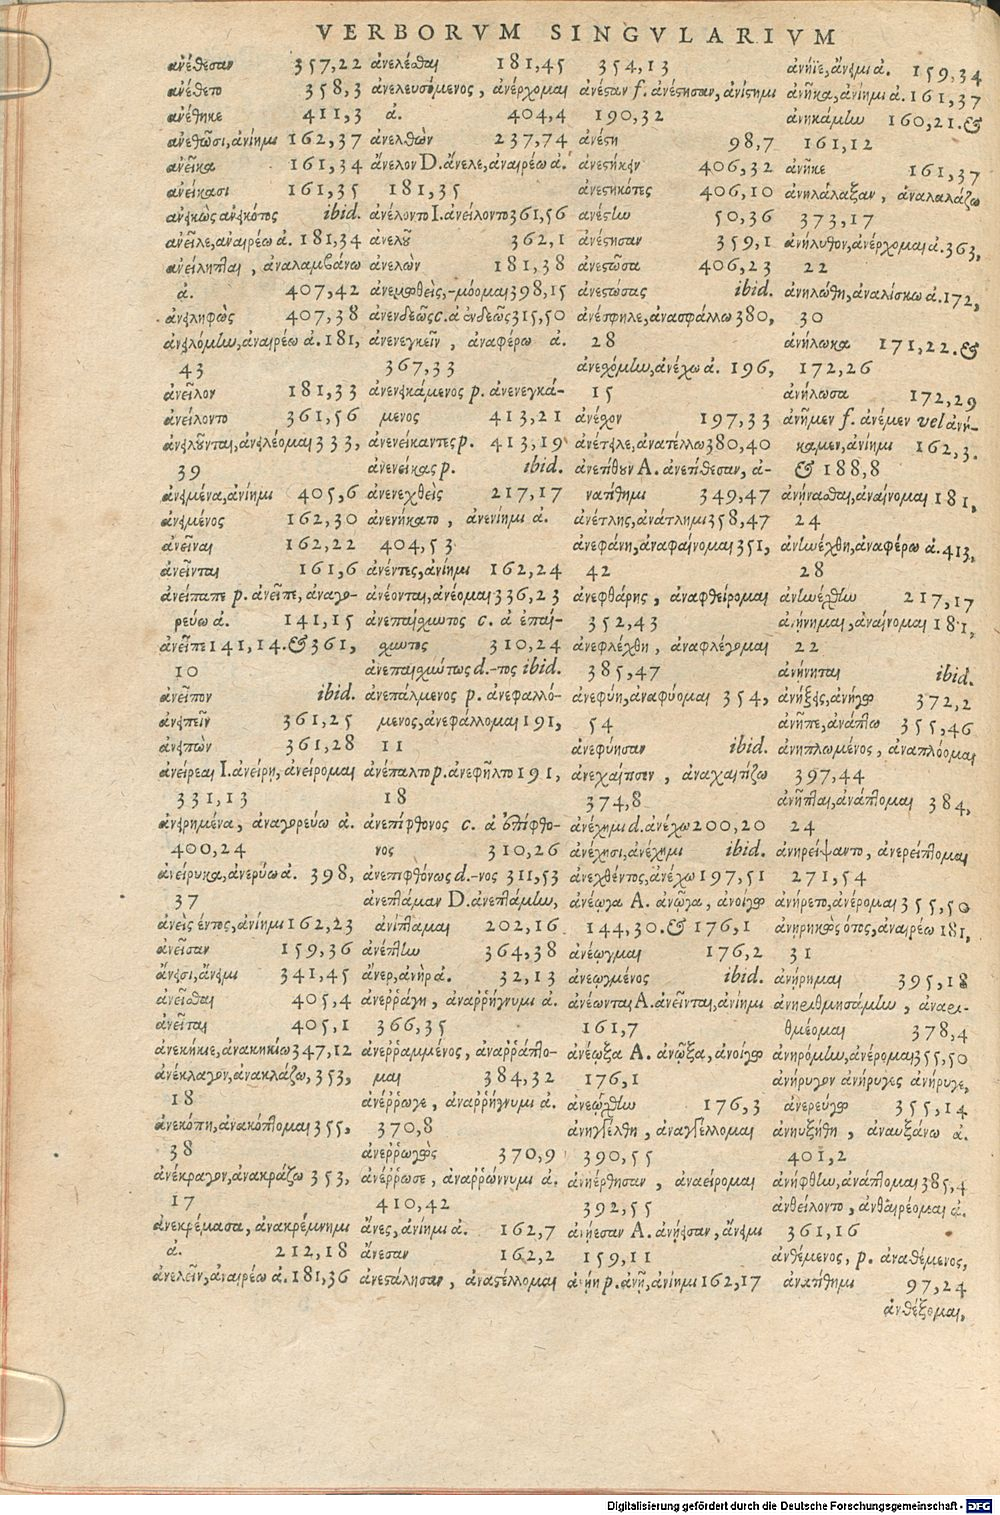 VERBORVM SINGVLARIVM
ἀνέθεσαν 357,22
ἀνέθετο 358,3
ἀνέθηκε 411,3
ἀνεθῶσι,ἀνίημι 162,37
ἀνεῖκα 161,34
ἀνείκασι 161,35
ἀνεικὼς ἀνεικότος ibid.
ἀνεῖλε,ἀναιρέω ἀ. 181,34
ἀνείληπται, ἀναλαμβάνω
ἀ. 407,42
ἀνειληφὼς 407,38
ἀνειλόμην,ἀναιρέω ἀ. 181,
43
ἀνεῖλον 181,33
ἀνείλοντο 361,56
ἀνειλοῦνται,ἀνειλέομαι 333,
39
ἀνειμένα,ἀνίημι 405,6
ἀνειμένος 162,30
ἀνεῖναι 162,22
ἀνεῖνται 161,6
ἀνείπατε p. ἀνεῖπε, ἀναγο-
ρεύω ἀ. 141,15
ἀνεῖπε 141,14.& 361,
10
ἀνεῖπον ibid.
ἀνειπεῖν 361,25
ἀνειπὼν 361,28
ἀνείρεαι I.ἀνείρῃ, ἀνείρομαι
331,13
ἀνειρημένα, ἀναγορεύω ἀ.
400,24
ἀνείρυκα,ἀνερύω ἀ. 398,
37
ἀνεὶς έντος,ἀνίημι 162,23
ἀνεῖσαν 159,36
ἄνεισι,ἄνειμι 341,45
ἀνεῖσθαι 405,4
ἀνεῖται 405,1
ἀνεκήκιε,ἀνακηκίω 347,12
ἀνέκλαγον,ἀνακλάζω, 353,
18
ἀνεκόπη,ἀνακόπτομαι 355,
38
ἀνέκραγον,ἀνακράζω 353,
17
ἀνεκρέμασα, ἀνακρέμνημι
ἀ. 212,18
ἀνελεῖν,ἀναιρέω ἀ. 181,36
ἀνελέσθαι 181,45
ἀνελευσόμενος, ἀνέρχομαι
ἀ. 404,4
ἀνελθὼν 237,74
ἄνελον D.ἄνελε,ἀναιρέω ἀ.
181,35
ἀνέλοντο I.ἀνείλοντο 361,56
ἀνελοῦ 362,1
ἀνελὼν 181,38
ἀνεμωθεὶς,-μόομαι 398,15
ἀνενδεῶς c.ἀ ἐνδεῶς 315,50
ἀνενεγκεῖν, ἀναφέρω ἀ.
367,33
ἀνενεικάμενος p. ἀνενεγκά-
μενος 413,21
ἀνενείκαντες p. 413,19
ἀνενείκας p. ibid.
ἀνενεχθεὶς 217,17
ἀνενήκατο, ἀνενίημι ἀ.
404,53
ἀνέντες,ἀνίημι 162,24
ἀνέονται,ἀνέομαι 336,23
ἀνεπαίσχυντος c. ἀ ἐπαί-
σχυντος 310,24
ἀνεπαισχύντως d.-τος ibid.
ἀνεπάλμενος p. ἀνεφαλλό-
μενος,ἀνεφάλλομαι 191,
11
ἀνέπαλτο p.ἀνεφῆλτο 191,
18
ἀνεπίφθονος c. ἀ ἐπίφθο-
νος 310,26
ἀνεπιφθόνως d.-νος 311,53
ἀνεπτάμαν D.ἀνεπτάμην,
ἀνίπταμαι 202,16
ἀνέπτην 364,38
ἄνερ,ἀνὴρ ἀ. 32,13
ἀνεῤῥάγη, ἀναῤῥήγνυμι ἀ.
366,35
ἀνεῤῥαμμένος, ἀναῤῥάπτο-
μαι 384,32
ἀνέῤῥωγε, ἀναῤῥήγνυμι ἀ.
370,8
ἀνεῤῥωγὼς 370,9
ἀνέῤῥωσε, ἀναῤῥώννυμι ἀ.
410,42
ἄνες,ἀνίημι ἀ. 162,7
ἄνεσαν 162,2
ἀνεστάλησαν, ἀναστέλλομαι
354,13
ἀνέσταν f. ἀνέστησαν,ἀνίστημι
190,32
ἀνέστη 98,7
ἀνεστήκειν 406,32
ἀνεστηκότες 406,10
ἀνέστην 50,36
ἀνέστησαν 359,1
ἀνεστῶσα 406,23
ἀνεστώσας ibid.
ἀνέσφηλε,ἀνασφάλλω 380,
28
ἀνεσχόμην,ἀνέχω ἀ. 196,
15
ἀνέσχον 197,33
ἀνέτειλε,ἀνατέλλω 380,40
ἀνετίθουν A. ἀνετίθεσαν, ἀ-
νατίθημι 349,47
ἀνέτλης,ἀνάτλημι 358,47
ἀνεφάνη,ἀναφαίνομαι 351,
42
ἀνεφθάρης, ἀναφθείρομαι
352,43
ἀνεφλέχθη, ἀναφλέγομαι
385,47
ἀνεφύη,ἀναφύομαι 354,
54
ἀνεφύησαν ibid.
ἀνεχαίτισεν, ἀναχαιτίζω
374,8
ἀνέχημι d.ἀνέχω 200,20
ἀνέχησι,ἀνέχημι ibid.
ἀνεχθέντος,ἀνέχω 197,51
ἀνέῳγα A. ἀνῷγα, ἀνοίγω
144,30.& 176,1
ἀνέῳγμαι 176,2
ἀνεῳγμένος ibid.
ἀνέωνται A.ἀνεῖνται,ἀνίημι
161,7
ἀνέῳξα A. ἀνῷξα, ἀνοίγω
176,1
ἀνεῴχθην 176,3
ἀνηγγέλθη, ἀναγγέλλομαι
390,55
ἀνηέρθησαν, ἀναείρομαι
392,55
ἀνῄεσαν A. ἀνῄεισαν,ἄνειμι
159,11
ἀνήῃ p. ἀνῇ,ἀνίημι 162,17
ἀνήϊε,ἄνειμι ἀ. 159,34
ἀνῆκα,ἀνίημι ἀ. 161,37
ἀνηκάμην 160,21.&
161,12
ἀνῆκε 161,37
ἀνηλάλαξαν, ἀναλαλάζω
373,17
ἀνήλυθον,ἀνέρχομαι ἀ. 363,
22
ἀνηλώθη,ἀναλίσκω ἀ. 172,
30
ἀνήλωκα 171,22.&
172,26
ἀνήλωσα 172,29
ἀνῆμεν f. ἀνέμεν vel ἀνή-
καμεν,ἀνίημι 162,3.
& 188,8
ἀνήνασθαι,ἀναίνομαι 181,
24
ἀνηνέχθη,ἀναφέρω ἀ. 413,
28
ἀνηνέχθην 217,17
ἀνήνημαι,ἀναίνομαι 181,
22
ἀνήνηται ibid.
ἀνῆξεις,ἀνήγω 372,2
ἀνῆπτε,ἀνάπτω 355,46
ἀνηπλωμένος, ἀναπλόομαι
397,44
ἀνῆπται,ἀνάπτομαι 384,
24
ἀνηρείψαντο, ἀνερείπτομαι
271,54
ἀνήρετο,ἀνέρομαι 355,50
ἀνῃρηκὼς ότος,ἀναιρέω 181,
31
ἀνῄρημαι 395,18
ἀνηριθμησάμην, ἀναρι-
θμέομαι 378,4
ἀνηρόμην,ἀνέρομαι 355,50
ἀνήρυγον ἀνήρυγες ἀνήρυγε,
ἀνερεύγω 355,14
ἀνηυξήθη, ἀναυξάνω ἀ.
401,2
ἀνήφθην,ἀνάπτομαι 385,4
ἀνθείλοντο, ἀνθαιρέομαι ἀ.
361,16
ἀνθέμενος, p. ἀναθέμενος,
ἀνατίθημι 97,24
ἀνθέξομαι,
Digitalisierung gefördert durch die Deutsche Forschungsgemeinschaft - DFG